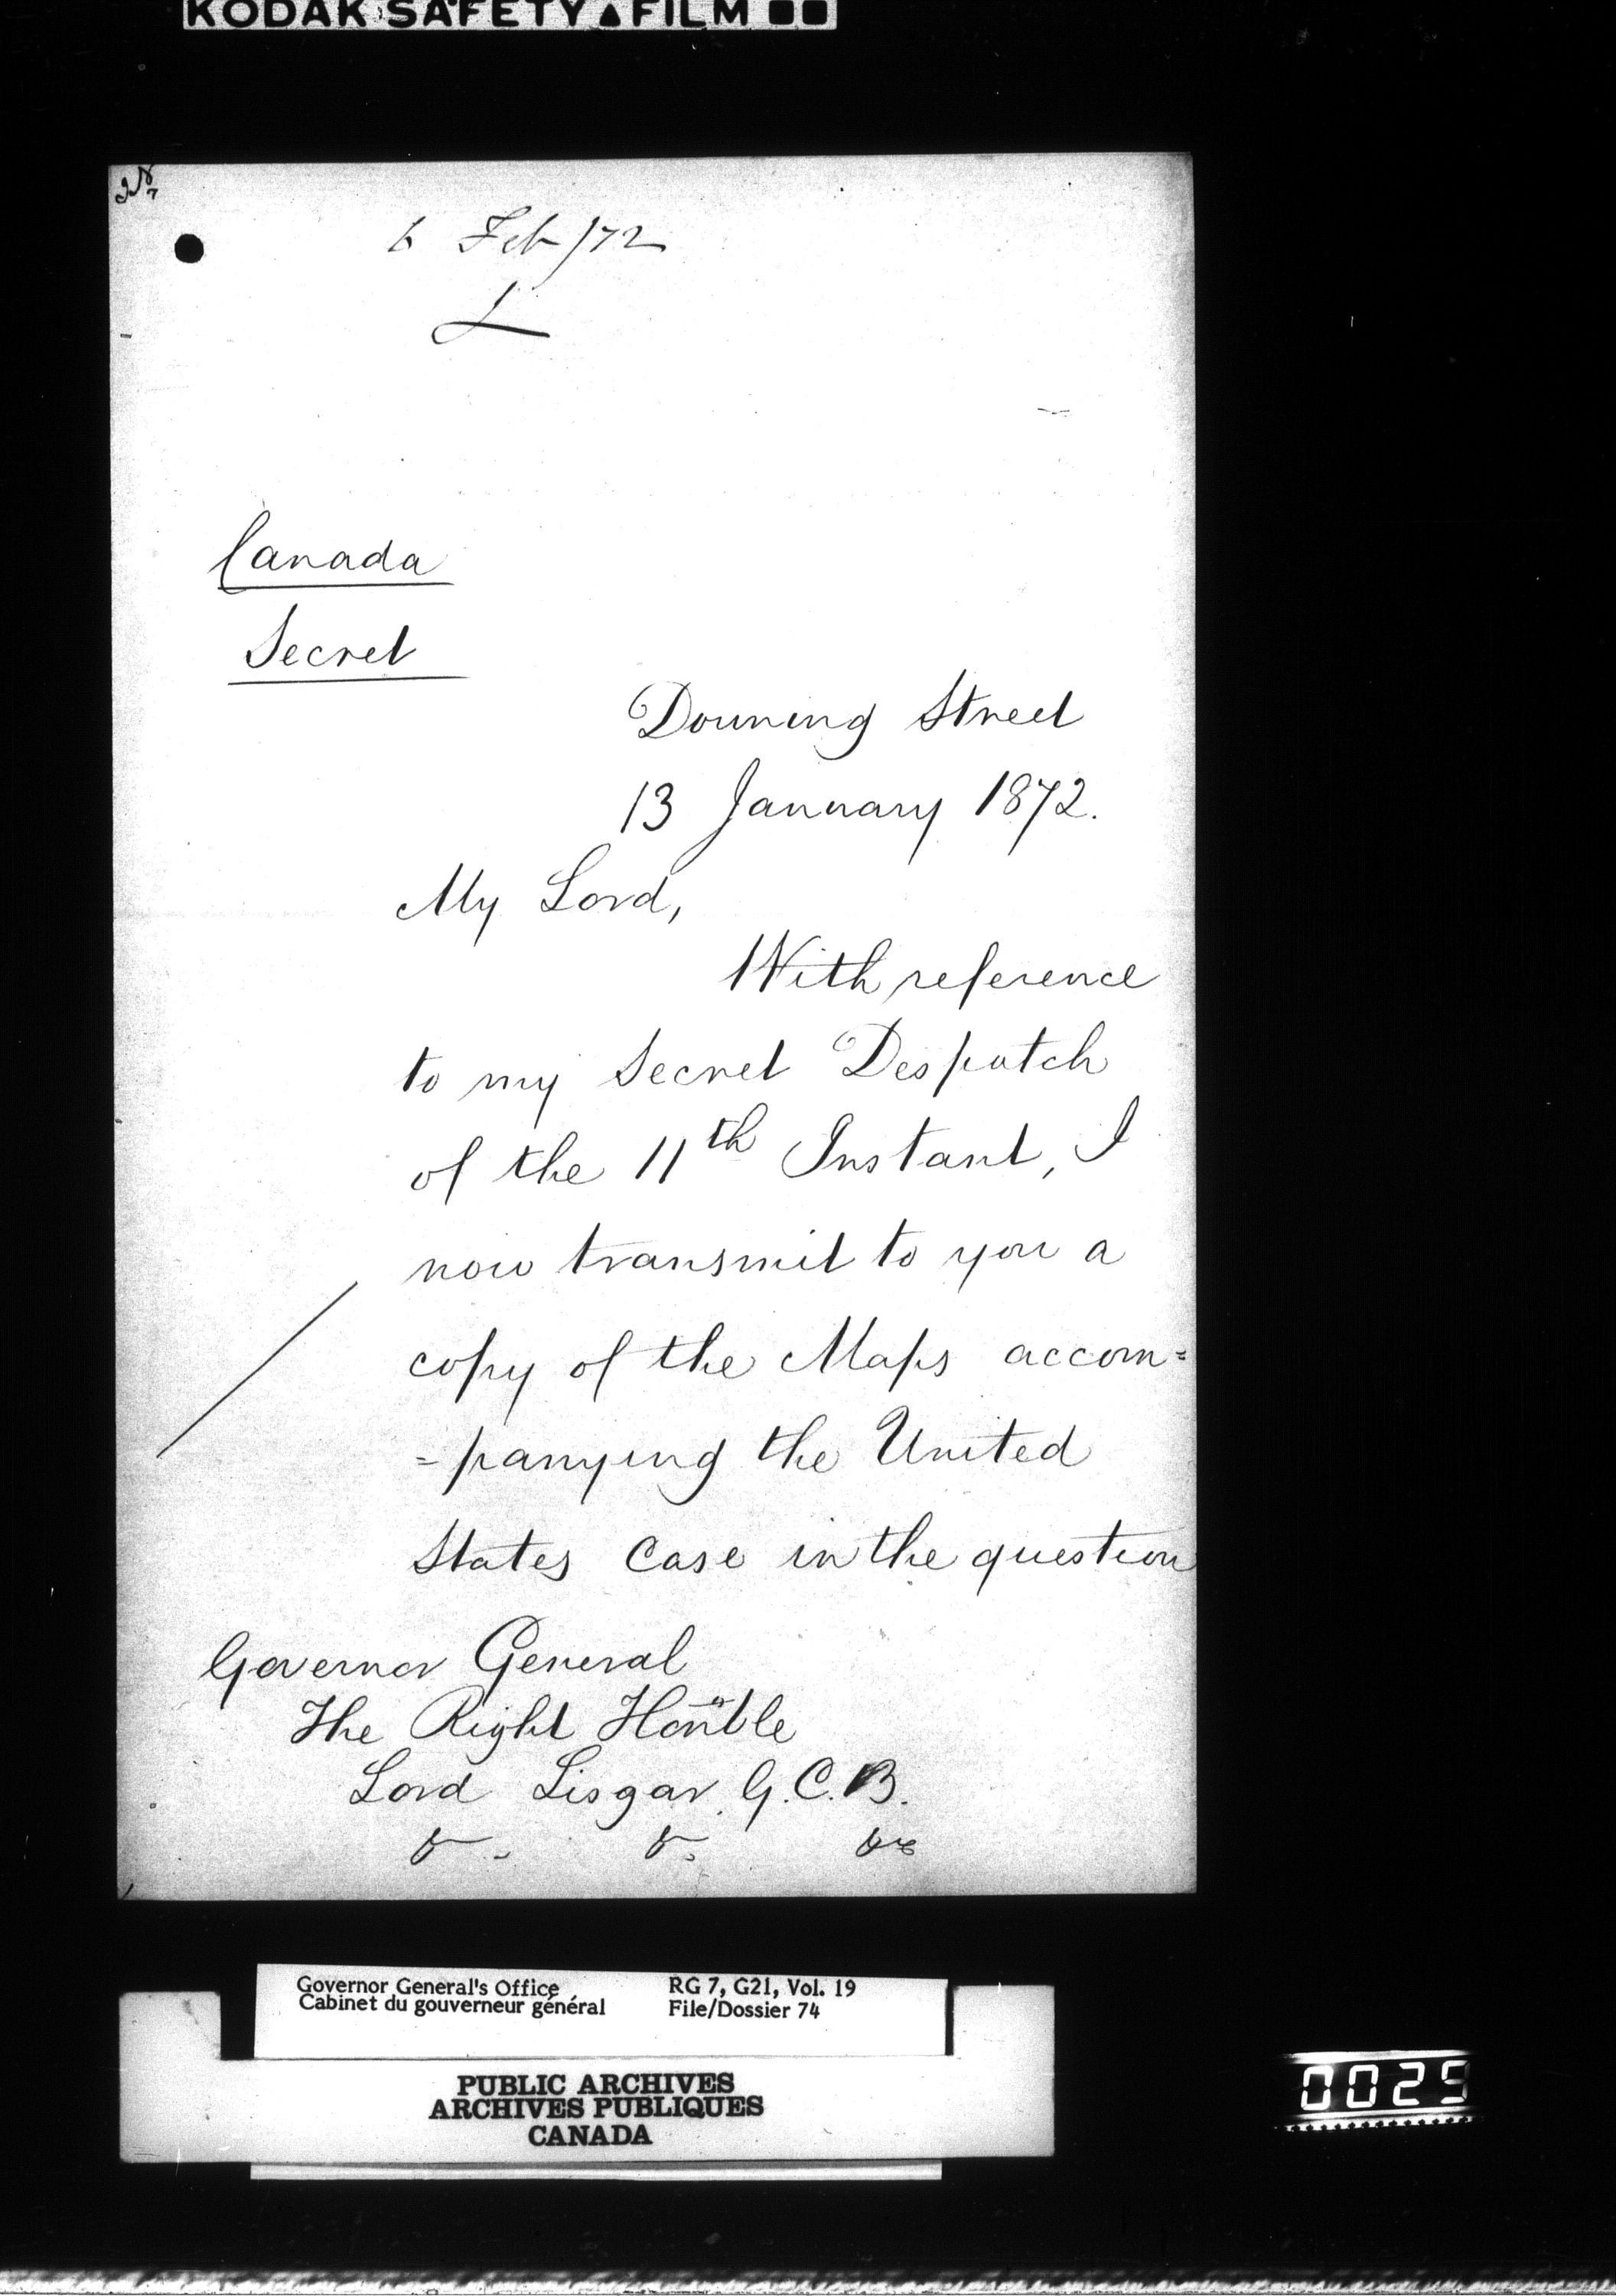 KODAK SAFETY FILM
6 Feb/72
L
Canada
Secret
Downing Street
13 January 1872.
My Lord,
With reference
to my Secret Despatch
of the 11th Instant, I
now transmit to you a
copy of the Maps accom=
=panying the United
States Case in the question
Governor General
The Right Honble
Lord Lisgar. G.C.B.
Governor General's Office
Cabinet du gouverneur général
RG 7, G21, Vol. 19
File/Dossier 74
PUBLIC ARCHIVES
ARCHIVES PUBLIQUES
CANADA
0025